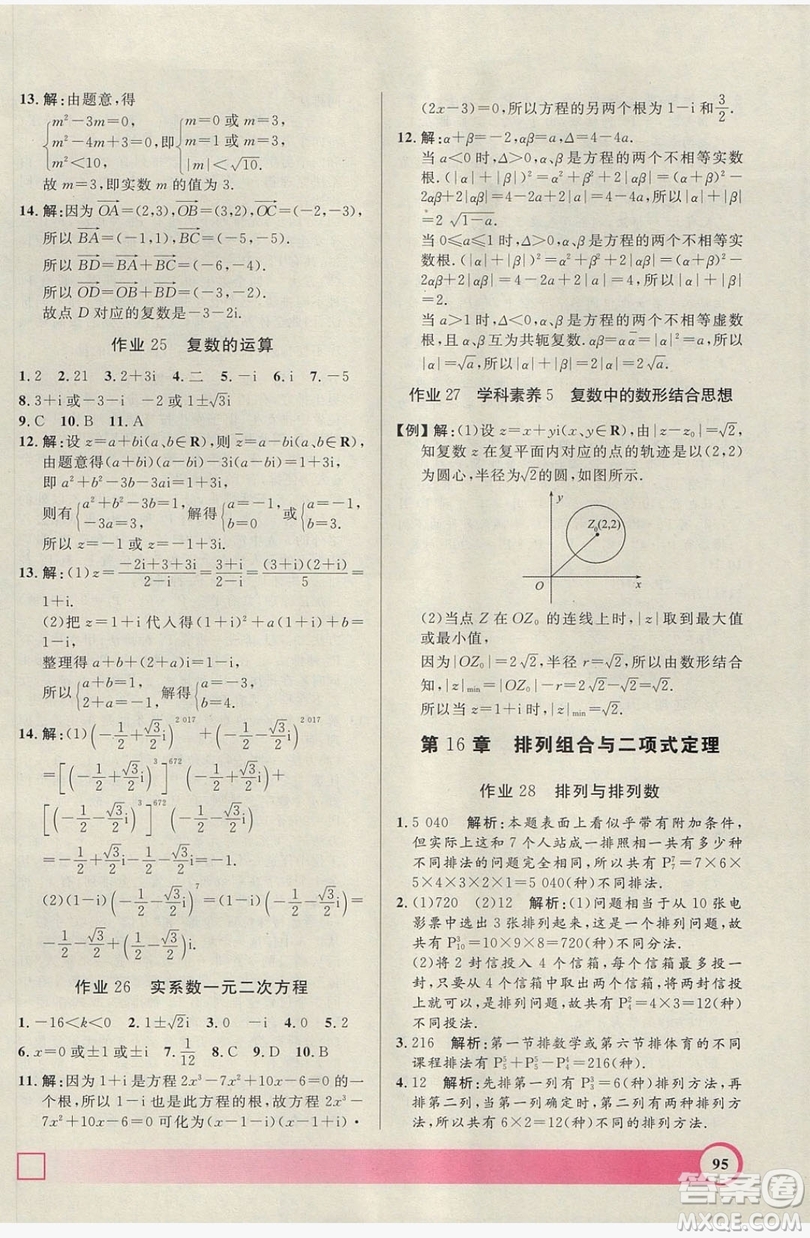 13. 解:由题意,得
{m²-3m=0, m²-4m+3=0, m²<10, 即{m=0 或 m=3, m=1 或 m=3, |m|<√10.
故 m=3,即实数 m 的值为 3.
14. 解:因为OA=(2,3),OB=(3,2),OC=(-2,-3),
所以BA=(-1,1),BC=(-5,-5).
所以BD=BA+BC=(-6,-4).
所以OD=OB+BD=(-3,-2).
故点 D 对应的复数是-3-2i.
作业 25 复数的运算
1. 2 2. 21 3. 2+3i 4. 二 5. -i 6. i 7. -5
8. 3+i或-3-i 或-1+3i 或 1-3i
9. C 10. B 11. A
12. 解:设 z=a+bi(a,b∈R),则z̄=a-bi(a,b∈R),
由题意得(a+bi)(a-bi)-3i(a+bi)=1,
即 a²+b²+3b-3ai=1.
则有{a²+b²+3b=1, -3a=3, 解得{a=-1, b=0 或{a=-1, b=-3.
所以 z=-1 或 z=-1-3i.
13. 解:(1)z=(-2i+3+3i)/(2-i)=(3+i)/(2-i)=(3+i)(2+i)/5=
1+i.
(2)把 z=1+i 代入得(1+i)²+a(1+i)+b=
1-i,
整理得 a+b+(2+a)i=1-i,
所以{a+b=1, 2+a=-1, 解得{a=-3, b=4.
14. 解:(1)(-1/2+√3/2 i)^2 017+(-1/2-√3/2 i)^2 017
=[(-1/2+√3/2 i)³]^672(-1/2+√3/2 i)+
[(-1/2-√3/2 i)³]^672(-1/2-√3/2 i)
=-1/2+√3/2 i-1/2-√3/2 i
=-1.
(2)(1-i)(-1/2-√3/2 i)^7=(1-i)(-1/2-√3/2 i)=
-1/2-√3/2+(1/2-√3/2)i.
作业 26 实系数一元二次方程
1. -16<k<0 2. 1±√2i 3. 0 4. 0 5. 2
6. x=0 或±1 或±i 7. 1/12 8. C 9. D 10. B
11. 解:因为 1+i 是方程 2x³-7x²+10x-6=0 的一
个根,所以 1-i 也是此方程的根,故方程 2x³-
7x²+10x-6=0 可化为(x-1-i)(x-1+i)·
(2x-3)=0,所以方程的另两个根为 1-i 和3/2.
12. 解:α+β=-2,αβ=a,Δ=4-4a.
当 a<0 时,Δ>0,α、β 是方程的两个不相等实数
根.(|α|+|β|)²=|α|²+|β|²+2|αβ|=(α+β)²-
2αβ+2|αβ|=4-2a+2|a|,所以|α|+|β|=
2√(1-a).
当 0≤a≤1 时,Δ>0,α、β 是方程的两个不相等实
数根.(|α|+|β|)²=|α|²+|β|²+2|αβ|=(α+β)²-
2αβ+2|αβ|=4-2a+2|a|,所以|α|+|β|
=2.
当 a>1 时,Δ<0,α、β 是方程的两个不相等虚数
根,且 α、β 互为共轭复数,|α|=|β|,a=αᾱ=|α|²,
|α|=√a,所以|α|+|β|=2|α|=2√a.
作业 27 学科素养 5 复数中的数形结合思想
【例】解:(1)设 z=x+yi(x、y∈R),由|z-z₀|=√2,
知复数 z 在复平面内对应的点的轨迹是以(2,2)
为圆心,半径为√2的圆,如图所示.
y
Z₀(2,2)
O
x
(2)当点 Z 在 OZ₀ 的连线上时,|z|取到最大值
或最小值,
因为|OZ₀|=2√2,半径 r=√2,所以由数形结合
知,|z|min=|OZ₀|-√2=√2.
所以当 z=1+i 时,|z|min=√2.
第 16 章 排列组合与二项式定理
作业 28 排列与排列数
1. 5 040 解析:本题表面上看似乎带有附加条件,
但实际上这和 7 个人站成一排照相一共有多少种
不同排法的问题完全相同,所以共有 P₇⁷=7×6×
5×4×3×2×1=5 040(种)不同排法.
2. (1)720 (2)12 解析:(1)问题相当于从 10 张电
影票中选出 3 张排列起来,这是一个排列问题,故
共有 P₁₀³=10×9×8=720(种)不同分法.
(2)将 2 封信投入 4 个信箱,每个信箱最多投一
封,相当于从 4 个信箱中取出两个信箱投两封信
的排列,这是一个排列问题,故共有 P₄²=4×3=12(种)
不同投法.
3. 216 解析:第一节排数学或第六节排体育的不同
课程排法共有 P₅⁵+P₅⁵-P₄⁴=216(种).
4. 12 解析:先排第一列有 P₃³=6(种)排列方法,再
排第二列,当第一列确定时,第二列有两种排列方
法,所以共有 6×2=12(种)不同的排列方法.
95
答案圈
MXQE.COM